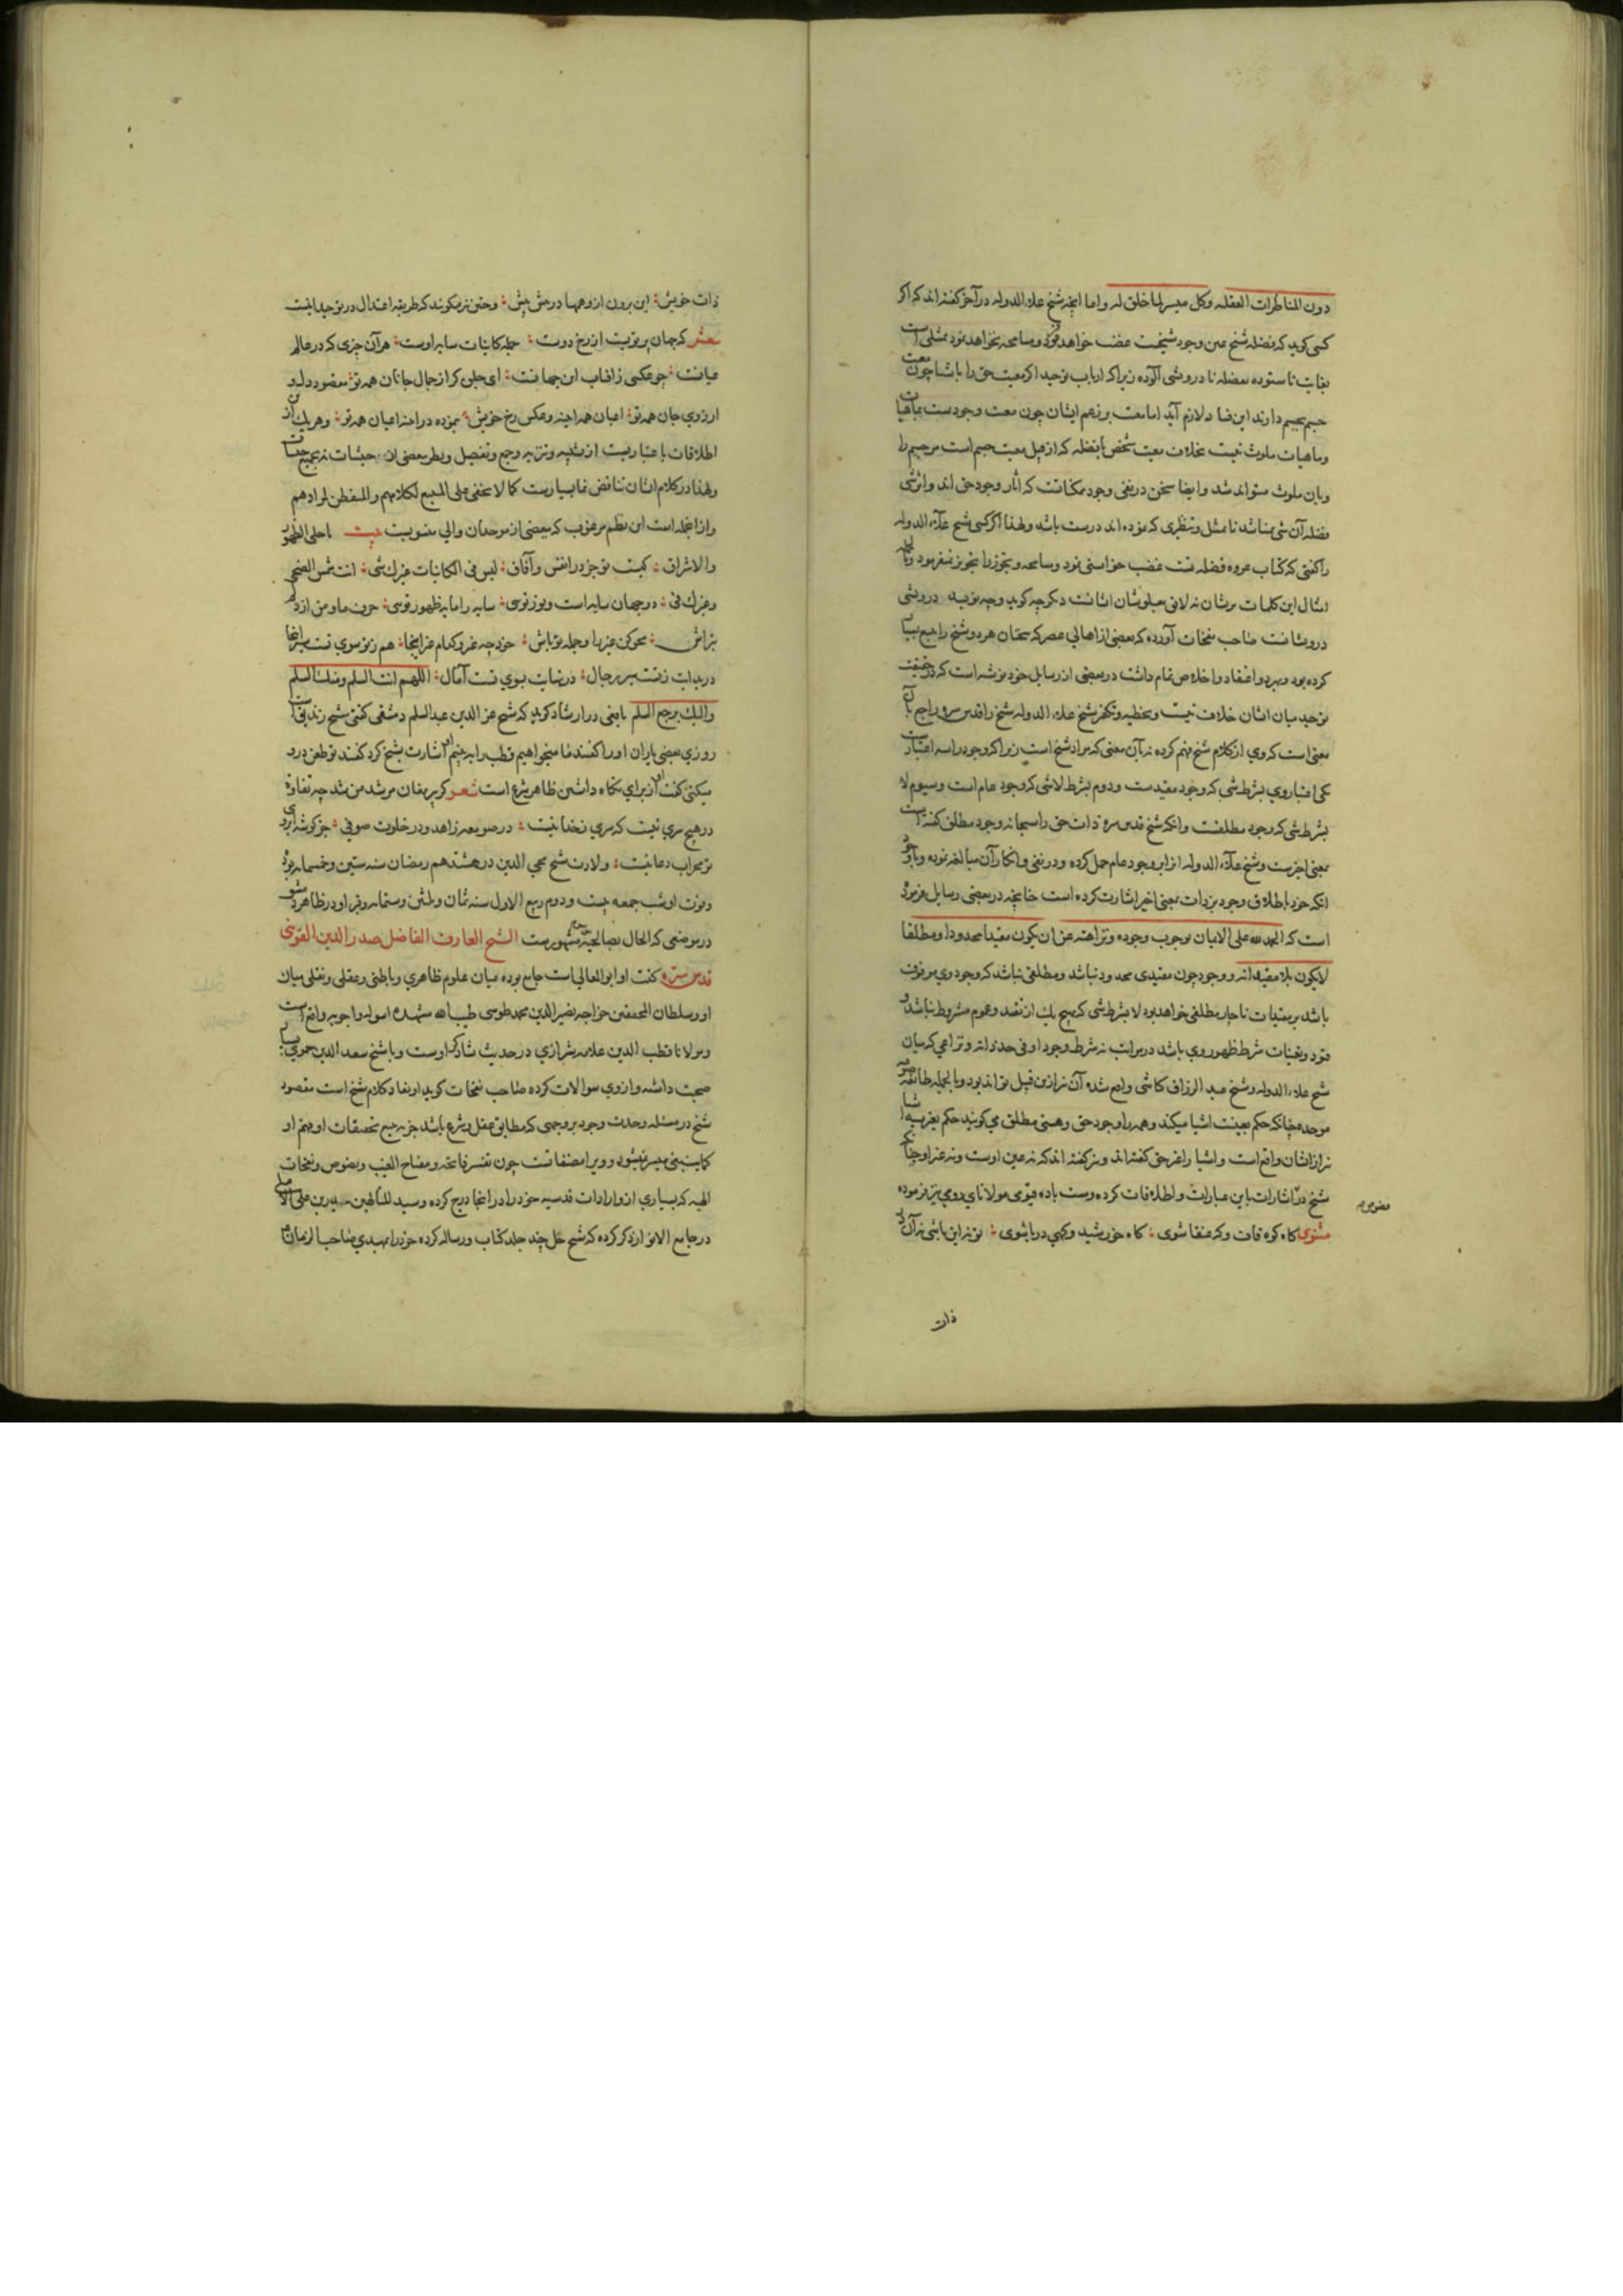 دون المناظرات العقلیه وکل میسر لما خلق له واما آنچه شیخ علاء الدوله در آخر گفته اند که اگر
کسی گوید که فضله شیخ عین وجود شیخست غضب خواهد فرمود و مسامحه نخواهد نمود تمثلی است
بغایت ناستوده بفضله نادرویشی آلوده زیرا که ارباب توحید اگر معیت حق را باشیا چون معیت
جسم بجسم دارند این فساد لازم آید اما معیت بر زعم ایشان چون معیت وجودست بماهیات
وماهیات ملوث نیست بخلاف معیت شخص بفضله که از قبیل معیت جسم است مر جسم را
وبان ملوث میتواند شد وایضا سخن در نفی وجود ممکناتست که آثار وجود حق اند واثر شی
فضله آن شی نباشد تا مثل ونظیری که نموده اند درست باشد ولهذا اگر کسی شیخ علاء الدوله
را گفتی که کتاب عروه فضله تست غضب خواستی نمود ومسامحه وتجوز را تجویز نفرمود وبالجمله
امثال این کلمات بریشان نه لایق میلوشان ایشانست دگر چه گوید وچه نویسد درویشی
درویشانست صاحب نفحات آورده که بعضی از اهالی عصر که سخنان هر دو شیخ را تتبع بسیار
کرده بود وبهردو اعتقاد واخلاص تمام داشت در بعضی از رسایل خود نوشته است که در حقیقت
توحید میان ایشان خلاف نیست وتخطیه وتکفیر شیخ علاء الدوله شیخ را قدس سره راجع بآن
معنی است که وی از کلام شیخ فهم کرده نه بآن معنی که مراد شیخ است زیرا که وجود را سه اعتبارست
یکی اعتبار وی بشرط شی که وجود مقیدست ودوم بشرط لا شی که وجود عام است وسیوم لا
بشرط شی که وجود مطلقست وانکه شیخ قدس سره ذات حق را سبحانه وجود مطلق گفته است
بمعنی اخیرست وشیخ علاء الدوله آنرا بر وجود عام حمل کرده ودر نفی وانکار آن مبالغه نموده وباوجود
انکه خود باطلاق وجود بر ذات بمعنی اخیر اشارت کرده است چنانچه در بعضی رسایل فرموده
است که الحمد لله علی الایمان بوجوب وجوده ونزاهته عن ان یکون مقیدا محدودا ومطلقا
لا یکون بلا مقیداته وجود چون مقیدی محدود نباشد ومطلقی نباشد که وجود وی موقوف
باشد بر مقیدات ناچار مطلقی خواهد بود لا بشرط شی که بهیچ یک از تقید وعموم مشروط نباشد و
قیود وتعینات شرط ظهور وی باشد در مراتب نه شرط وجود او فی حد ذاته ونزاعی که میان
شیخ علاء الدوله وشیخ عبد الرزاق کاشی واقع شده آن نیز ازین قبیل تواند بود وبالجمله طایفه صوفیه
موحده چنانکه حکم بعینیت اشیا میکنند وهمه را وجود حق وهستی مطلق می گویند حکم بغیریه اشیا
نیز ازیشان واقع است واشیا را غیر حق گفته اند ونیز گفته اند که نه عین اوست ونه غیر او چنانکه
شیخ در فصوص اشارات باین عبارات واطلاقات کرده ومست باده قیومی مولانای رومی نیز فرموده
مثنوی گاه کوه قاف وگه عنقا شوی : گاه خورشید وگهی دریا شوی : تو نه این باشی نه آن در
ذات
ذات خویش : ای برون از وهمها در پیش پیش : وحتی نیز میگویند که طریقه اعتدال در توحید اینست
شعر که جهان پرتویست از رخ دوست : جمله کاینات سایه اوست : هر آن چیزی که در عالم
عیانست : چو عکسی ز آفتاب آن جهانست : ای جلوه گر از جمال جانان همه تو : مقصود دل و
آرزوی جان همه تو : اعیان همه آینه وعکس رخ خویش : بنموده در آینه اعیان همه تو : وهر یک ازین
اطلاقات باعتباریست از تشبیه وتنزیه وجمع وتفصیل ونظر ببعضی از حیثیات نه بجمیع حیثیات
ولهذا در کلام ایشان تناقض نما بسیارست کما لا یخفی علی المتتبع لکلامهم والمتفطن لمرادهم
واز انجمله است این نظم مرغوب که ببعضی از موحدان والی منسوبست بیت یا جلی الظهور
والاشراق : کیست تو جز در انفس وآفاق : لیس فی الکاینات غیرک شی : انت شمس الضحی
وغیرک فی : دو جهان سایه است ونور تویی : سایه را مایه ظهور تویی : حرف ما ومن از دلم
بتراش : محو کن غیر را وجمله تو باش : خود چه غیر وکدام غیر اینجا : هم ز تو سوی تست سیر اینجا
در بدایت ز تست سیر رجال : در نهایت بسوی تست آمال : اللهم انت السلم ومنک السلم
والیک یرجع السلم یافعی در ارشاد گوید که شیخ عز الدین عبد السلم دمشقی گفتی شیخ زندیق است
روزی بعضی یاران او را گفتند ما میخواهیم قطب را ببینیم او اشارت بشیخ کرد گفتند تو طعن در وی
میکنی گفت آن از برای نگاه داشتن ظاهر شرع است شعر گر پیر مغان مرشد من شد چه تفاوت
در هیچ سری نیست که سری ز خدا نیست : در صومعه زاهد ودر خلوت صوفی : جز گوشه ابروی
تو محراب دعا نیست : ولادت شیخ محی الدین در هشتدهم رمضان سنه ستین وخمسمایه بود
وفوت او شب جمعه بیست ودوم ربیع الاول سنه ثمان وثلثین وستمایه وقبر او در ظاهر دمشق
در موضعی که الحال بصالحیه مشهورست الشیخ العارف الفاضل صدر الدین القونوی
قدس سره کنیت او ابو المعالی است جامع بوده میان علوم ظاهری وباطنی وعقلی ونقلی میان
او وسلطان المحققین خواجه نصیر الدین محمد طوسی طیب الله مشهده اسوله واجوبه واقع است
ومولانا قطب الدین علامه شیرازی در حدیث شاگرد اوست وبا شیخ سعد الدین حموی بسیار
صحبت داشته واز وی سوالات کرده صاحب نفحات گوید او نقاد کلام شیخ است مقصود
شیخ در مسئله وحدت وجود بر وجهی که مطابق عقل وشرع باشد جز به تتبع تحقیقات او وفهم او
کما ینبغی میسر نمیشود و ویرا مصنفاتست چون تفسیر فاتحه ومفتاح الغیب ونصوص ونفحات
الهیه که بسیاری از واردات قدسیه خود را در انجا درج کرده وسید المتالهین حیدر بن علی الاملی
در جامع الانوار ذکر کرده که شیخ حل چند جلد کتاب ورساله کرده خود را بمهدی صاحب الزمان